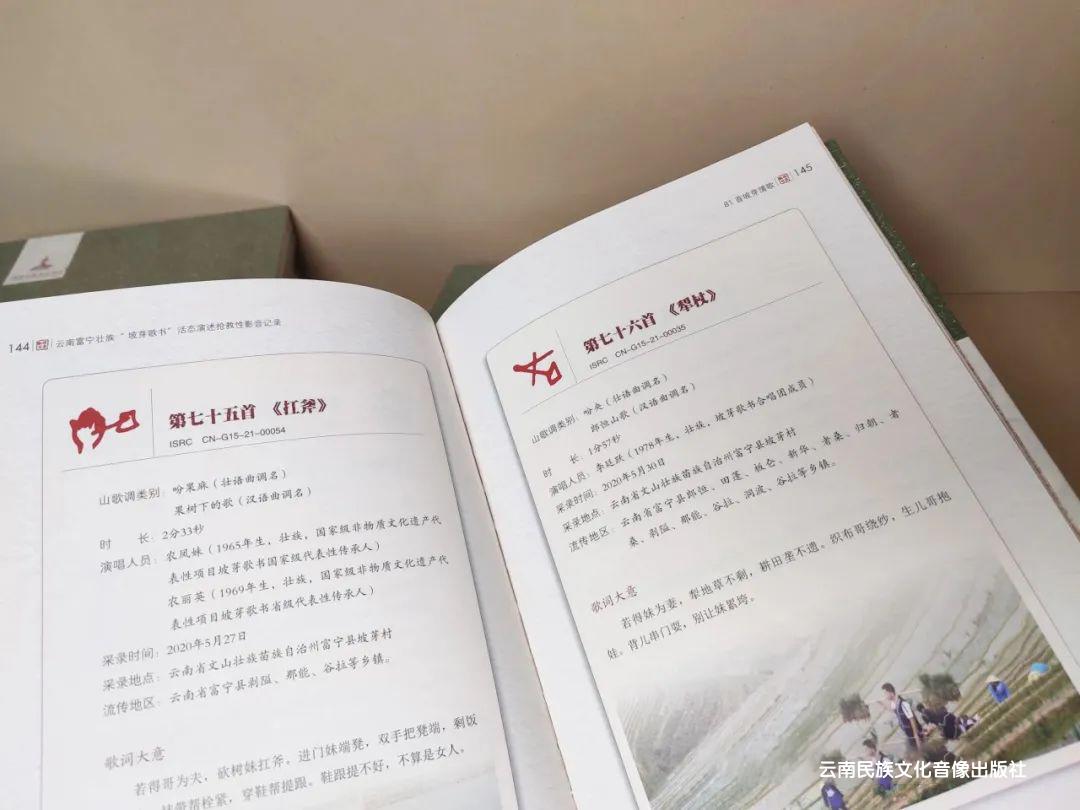 144 云南富宁壮族“坡芽歌书”活态演述抢救性影音记录
第七十五首 《扛斧》
ISRC CN-G15-21-00054
山歌调类别：吩果麻（壮语曲调名）
果树下的歌（汉语曲调名）
时 长：2分33秒
演唱人员：农凤妹（1965年生，壮族，国家级非物质文化遗产代
表性项目坡芽歌书国家级代表性传承人）
农丽英（1969年生，壮族，国家级非物质文化遗产代
表性项目坡芽歌书省级代表性传承人）
采录时间：2020年5月27日
采录地点：云南省文山壮族苗族自治州富宁县坡芽村
流传地区：云南省富宁县剥隘、那能、谷拉等乡镇。
歌词大意
若得哥为夫，砍树妹扛斧。进门妹端凳，双手把凳端，剩饭
带帮栓紧，穿鞋帮提跟。鞋跟提不好，不算是女人。
81 首坡芽情歌 145
第七十六首 《犁杖》
ISRC CN-G15-21-00035
山歌调类别：吩央（壮语曲调名）
郎恒山歌（汉语曲调名）
时 长：1分57秒
演唱人员：李廷跃（1978年生，壮族，坡芽歌书合唱团成员）
采录时间：2020年5月30日
采录地点：云南省文山壮族苗族自治州富宁县坡芽村
流传地区：云南省富宁县郎恒、田蓬、板仑、新华、者桑、归朝、者
桑、剥隘、那能、谷拉、洞波、谷拉等乡镇。
歌词大意
若得妹为妻，犁地草不剩，耕田垄不遗。织布哥绕纱，生儿哥抱
娃。背儿串门耍，别让妹累垮。
云南民族文化音像出版社